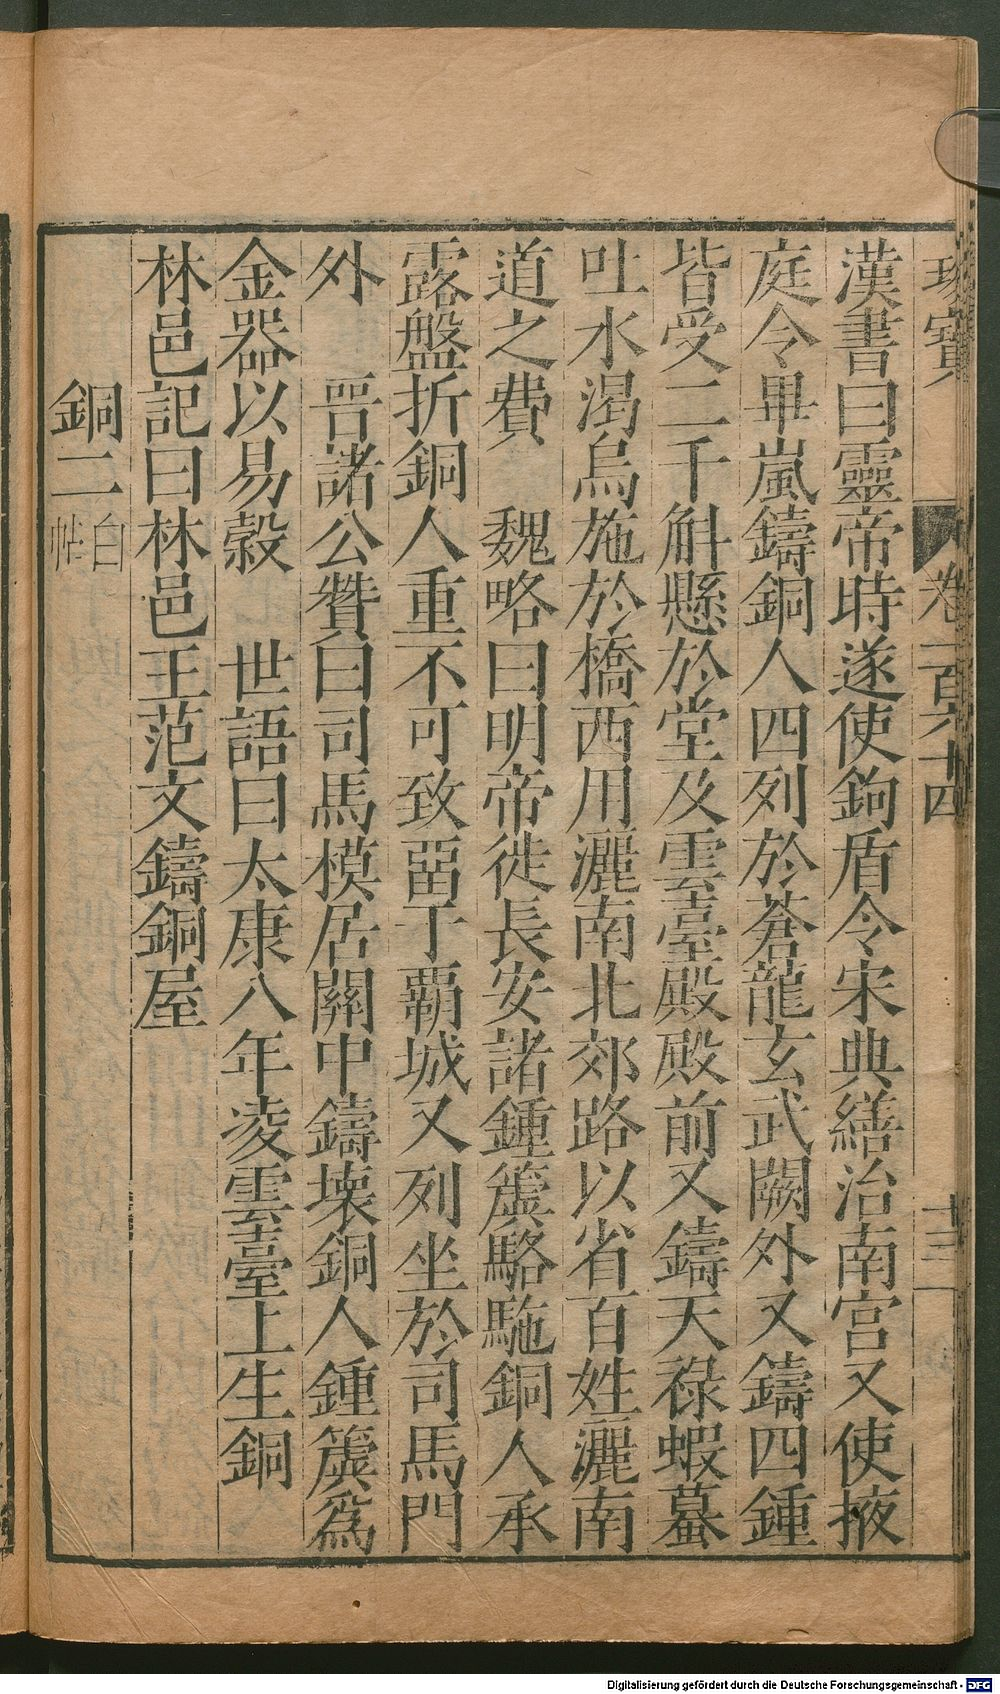 珍寶 卷一百六十四 十三
漢書曰靈帝時遂使鉤盾令宋典繕治南宫又使掖
庭令畢嵐鑄銅人四列於蒼龍玄武闕外又鑄四鍾
皆受二千斛懸於堂及雲臺殿殿前又鑄天祿蝦蟇
吐水渴烏施於橋西用灑南北郊路以省百姓灑南
道之費 魏略曰明帝徙長安諸鍾簴駱駞銅人承
露盤折銅人重不可致留于覇城又列坐於司馬門
外 晉諸公贊曰司馬模居關中鑄壊銅人鍾簴爲
金器以易穀 世語曰太康八年凌雲臺上生銅
林邑記曰林邑王范文鑄銅屋
銅二白帖
Digitalisierung gefördert durch die Deutsche Forschungsgemeinschaft - DFG